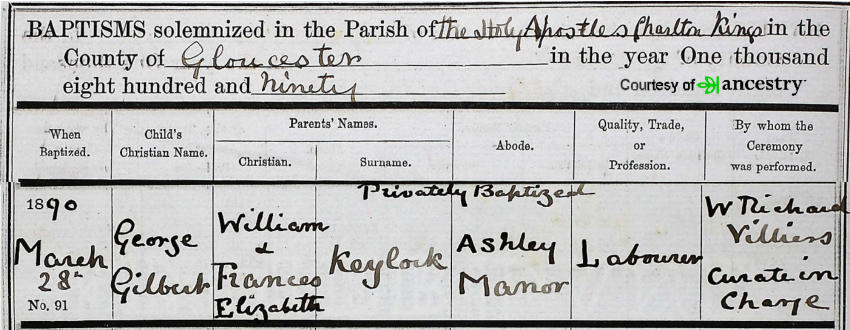 BAPTISMS solemnized in the Parish of the Holy Apostles Charlton Kings in the
County of Gloucester in the year One thousand
eight hundred and Ninety
Courtesy of ancestry
When Baptized.
Child's Christian Name.
Parents' Names.
Christian.
Surname.
Abode.
Quality, Trade, or Profession.
By whom the Ceremony was performed.
Privately Baptized
1890
March
28th
No. 91
George
Gilbert
William
&
Frances
Elizabeth
Keylock
Ashley
Manor
Labourer
W Richard
Villiers
Curate in
Charge